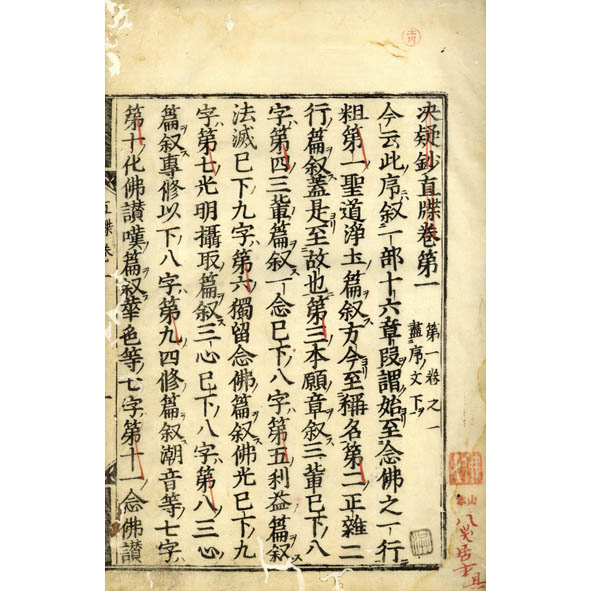 決疑鈔直牒卷第一
第一卷之一
盡序文下
今云此序叙一部十六章段謂始至念佛之一行
粗第一聖道淨土篇叙方今至稱名第二正雜二
行篇叙蓋是至故也第三本願章叙三輩已下八
字第四三輩篇叙一念已下八字第五利益篇叙
法滅已下九字第六獨留念佛篇叙佛光已下九
字第七光明攝取篇叙三心已下八字第八三心
篇叙專修以下八字第九四修篇叙潮音等七字
第十化佛讃嘆篇叙華色等七字第十一念佛讃
直牒卷一